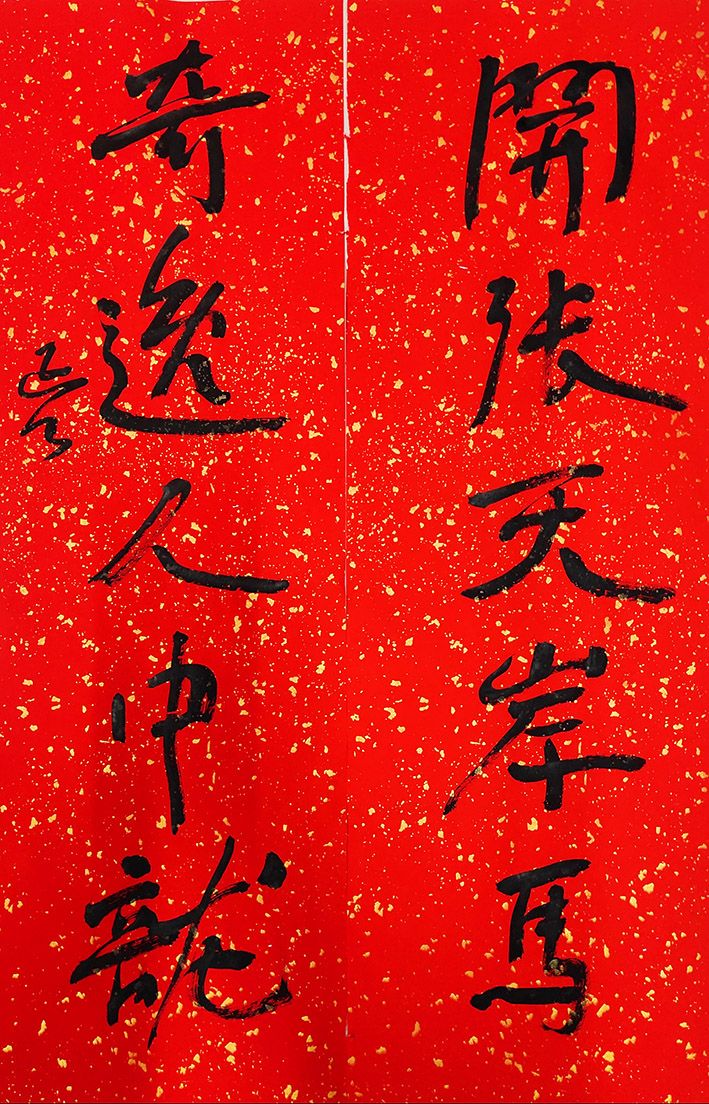 開张天岸馬
奇逸人中龍